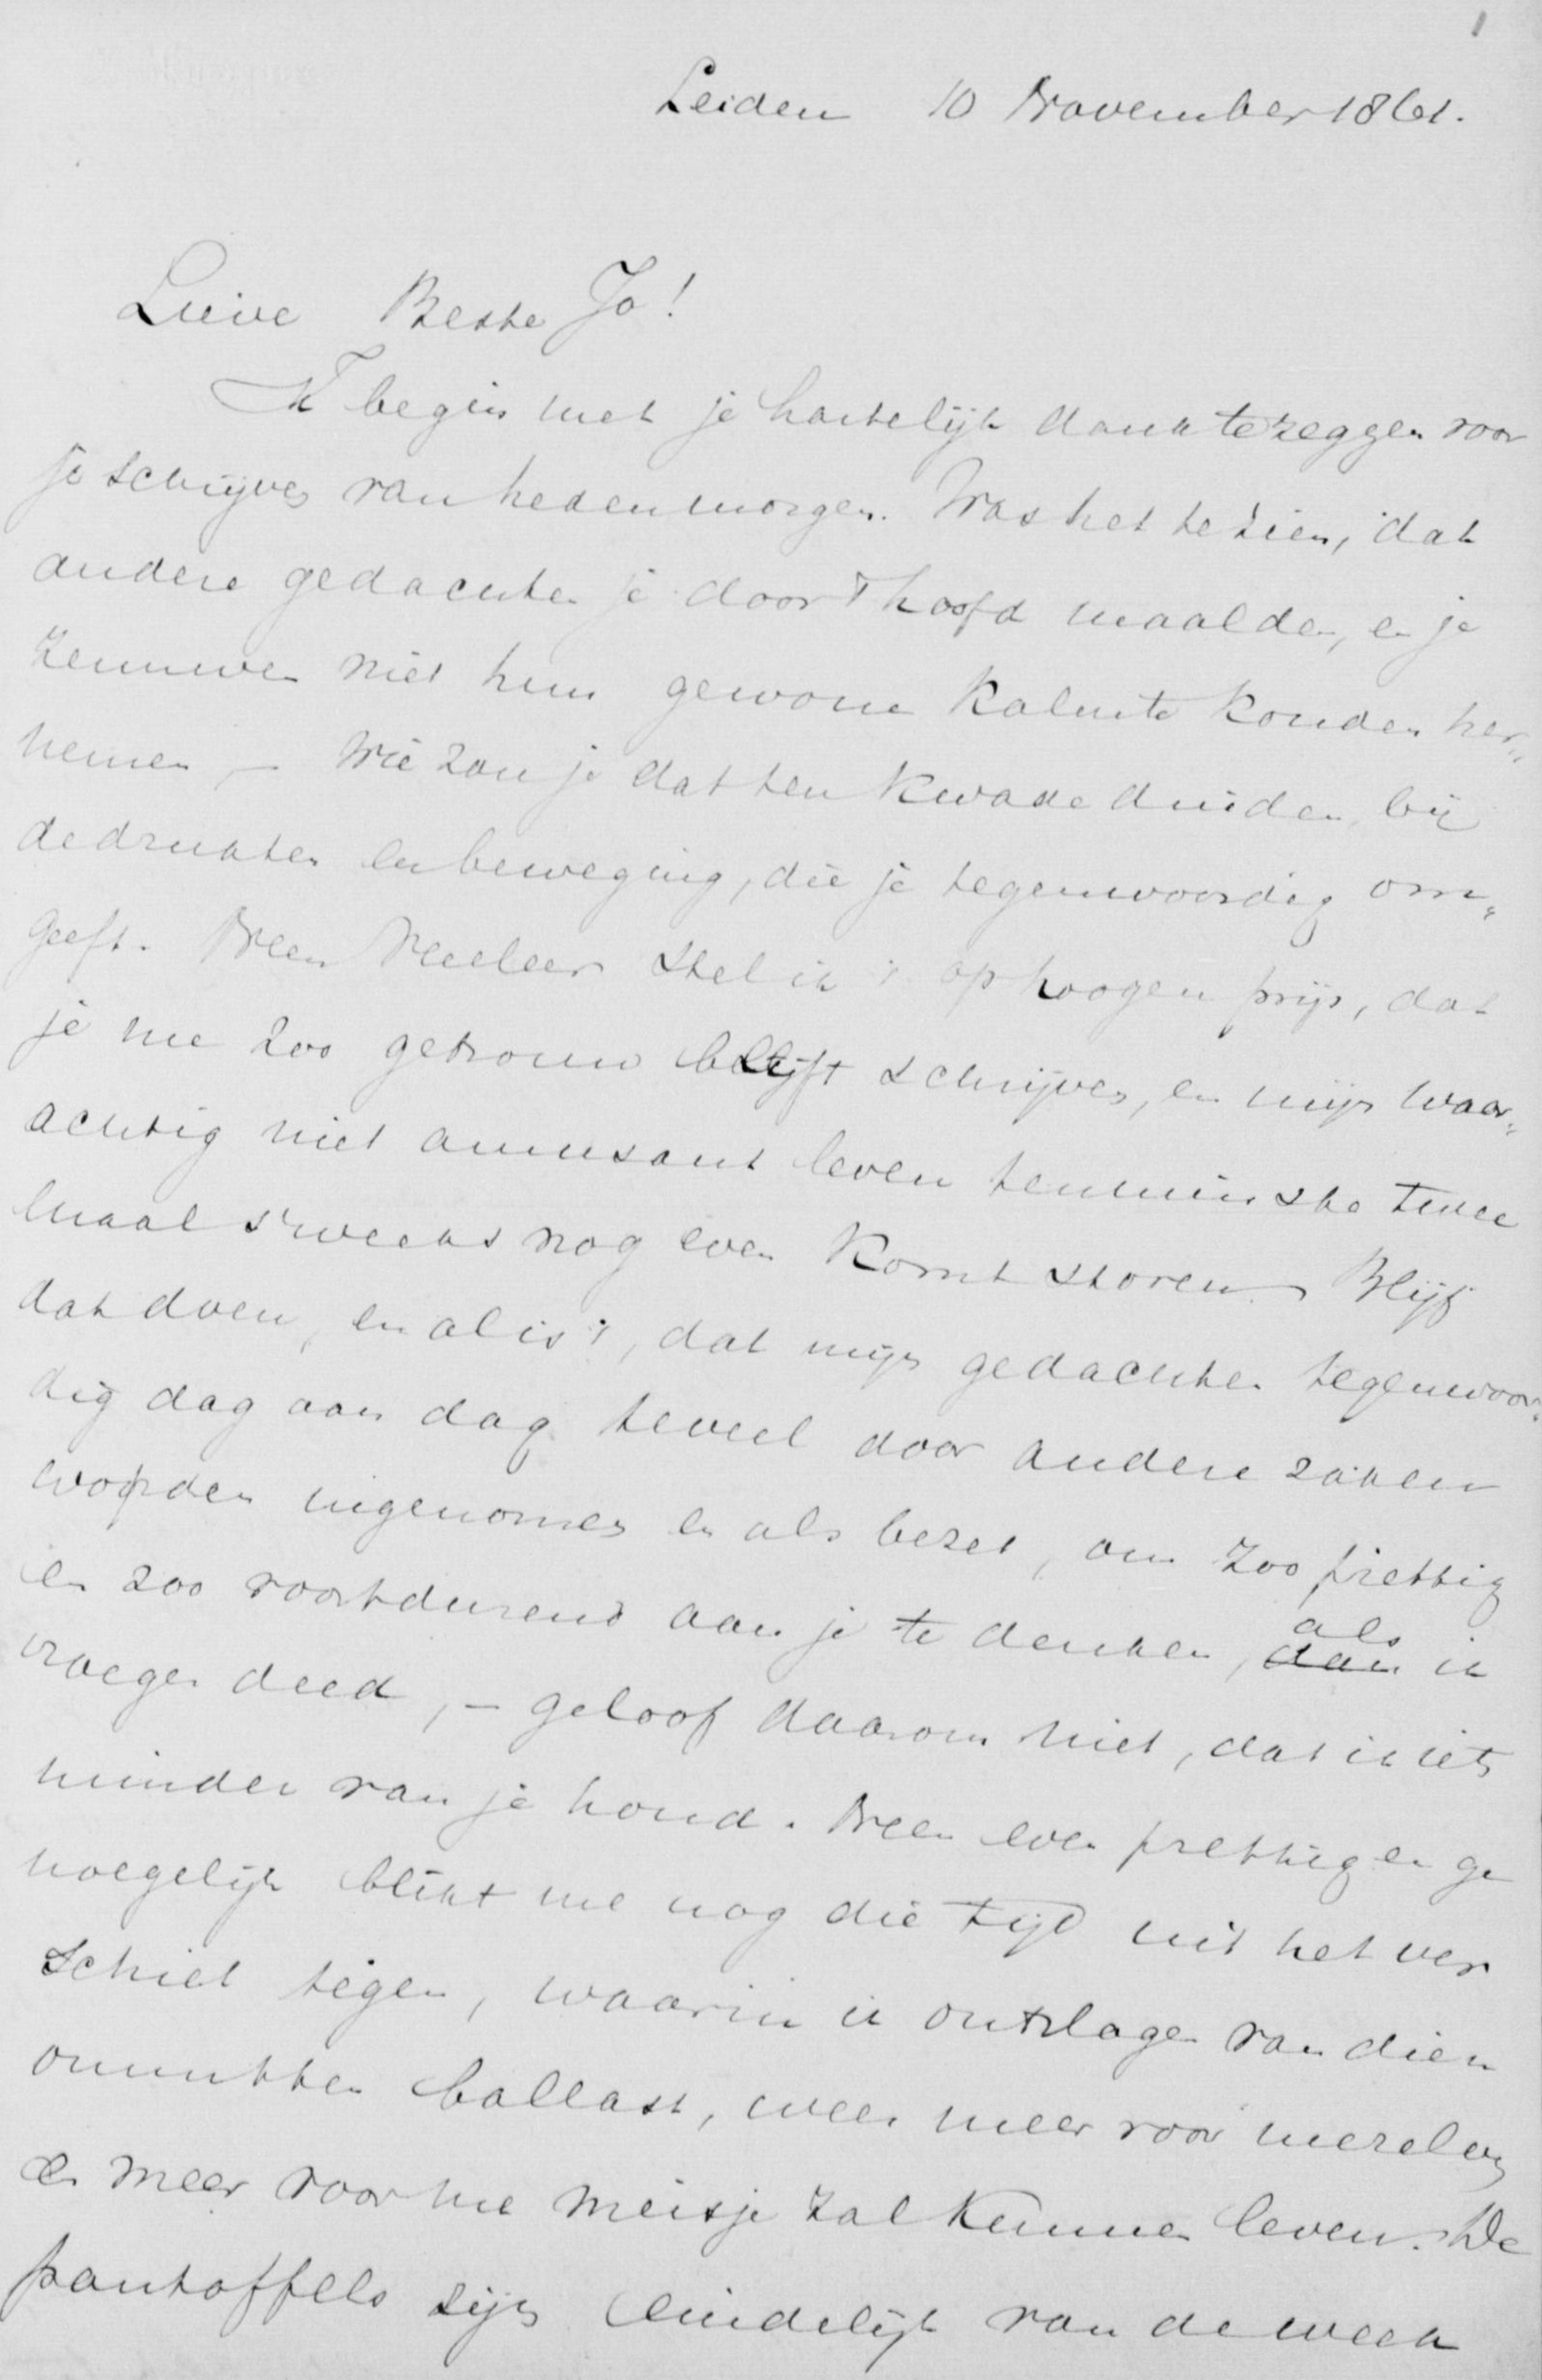 1
Leiden 10 November 1861.
Lieve Beste Jo!
Ik begin met je hartelijk dank te zeggen voor
je schrijven van hedenmorgen. Was het te zien, dat
andere gedachten je door 't hoofd maalden, en je
zenuwen niet hun gewone kalmte konden her„
nemen – Wie zou je dat ten kwade duiden, bij
de drukten en beweging, die je tegenwoordig om„
geeft. Neen Veeleer stel ik 't op hoogen prijs, dat
je me zoo getrouw blijft schrijven, en mijn waar„
achtig niet amusant leven tenminste twee
maal s'weeks nog even komt storen. Blijf
dat doen, en al is 't, dat mijn gedachten tegenwoor„
dig dag aan dag teveel door andere zaken
worden ingenomen en als bezet, om zoo prettig
en zoo voortdurend aan je te denken, dan als ik
vroeger deed, – geloof daarom niet, dat ik iets
minder van je houd. Neen even prettig en ge
noegelijk blikt me nog die tijd uit het ver
schiet tegen, waarin ik ontslagen van dien
onnutten ballast, weer meer voor mezelven
en meer voor me meisje zal kunnen leven. De
pantoffels zijn eindelijk van de week